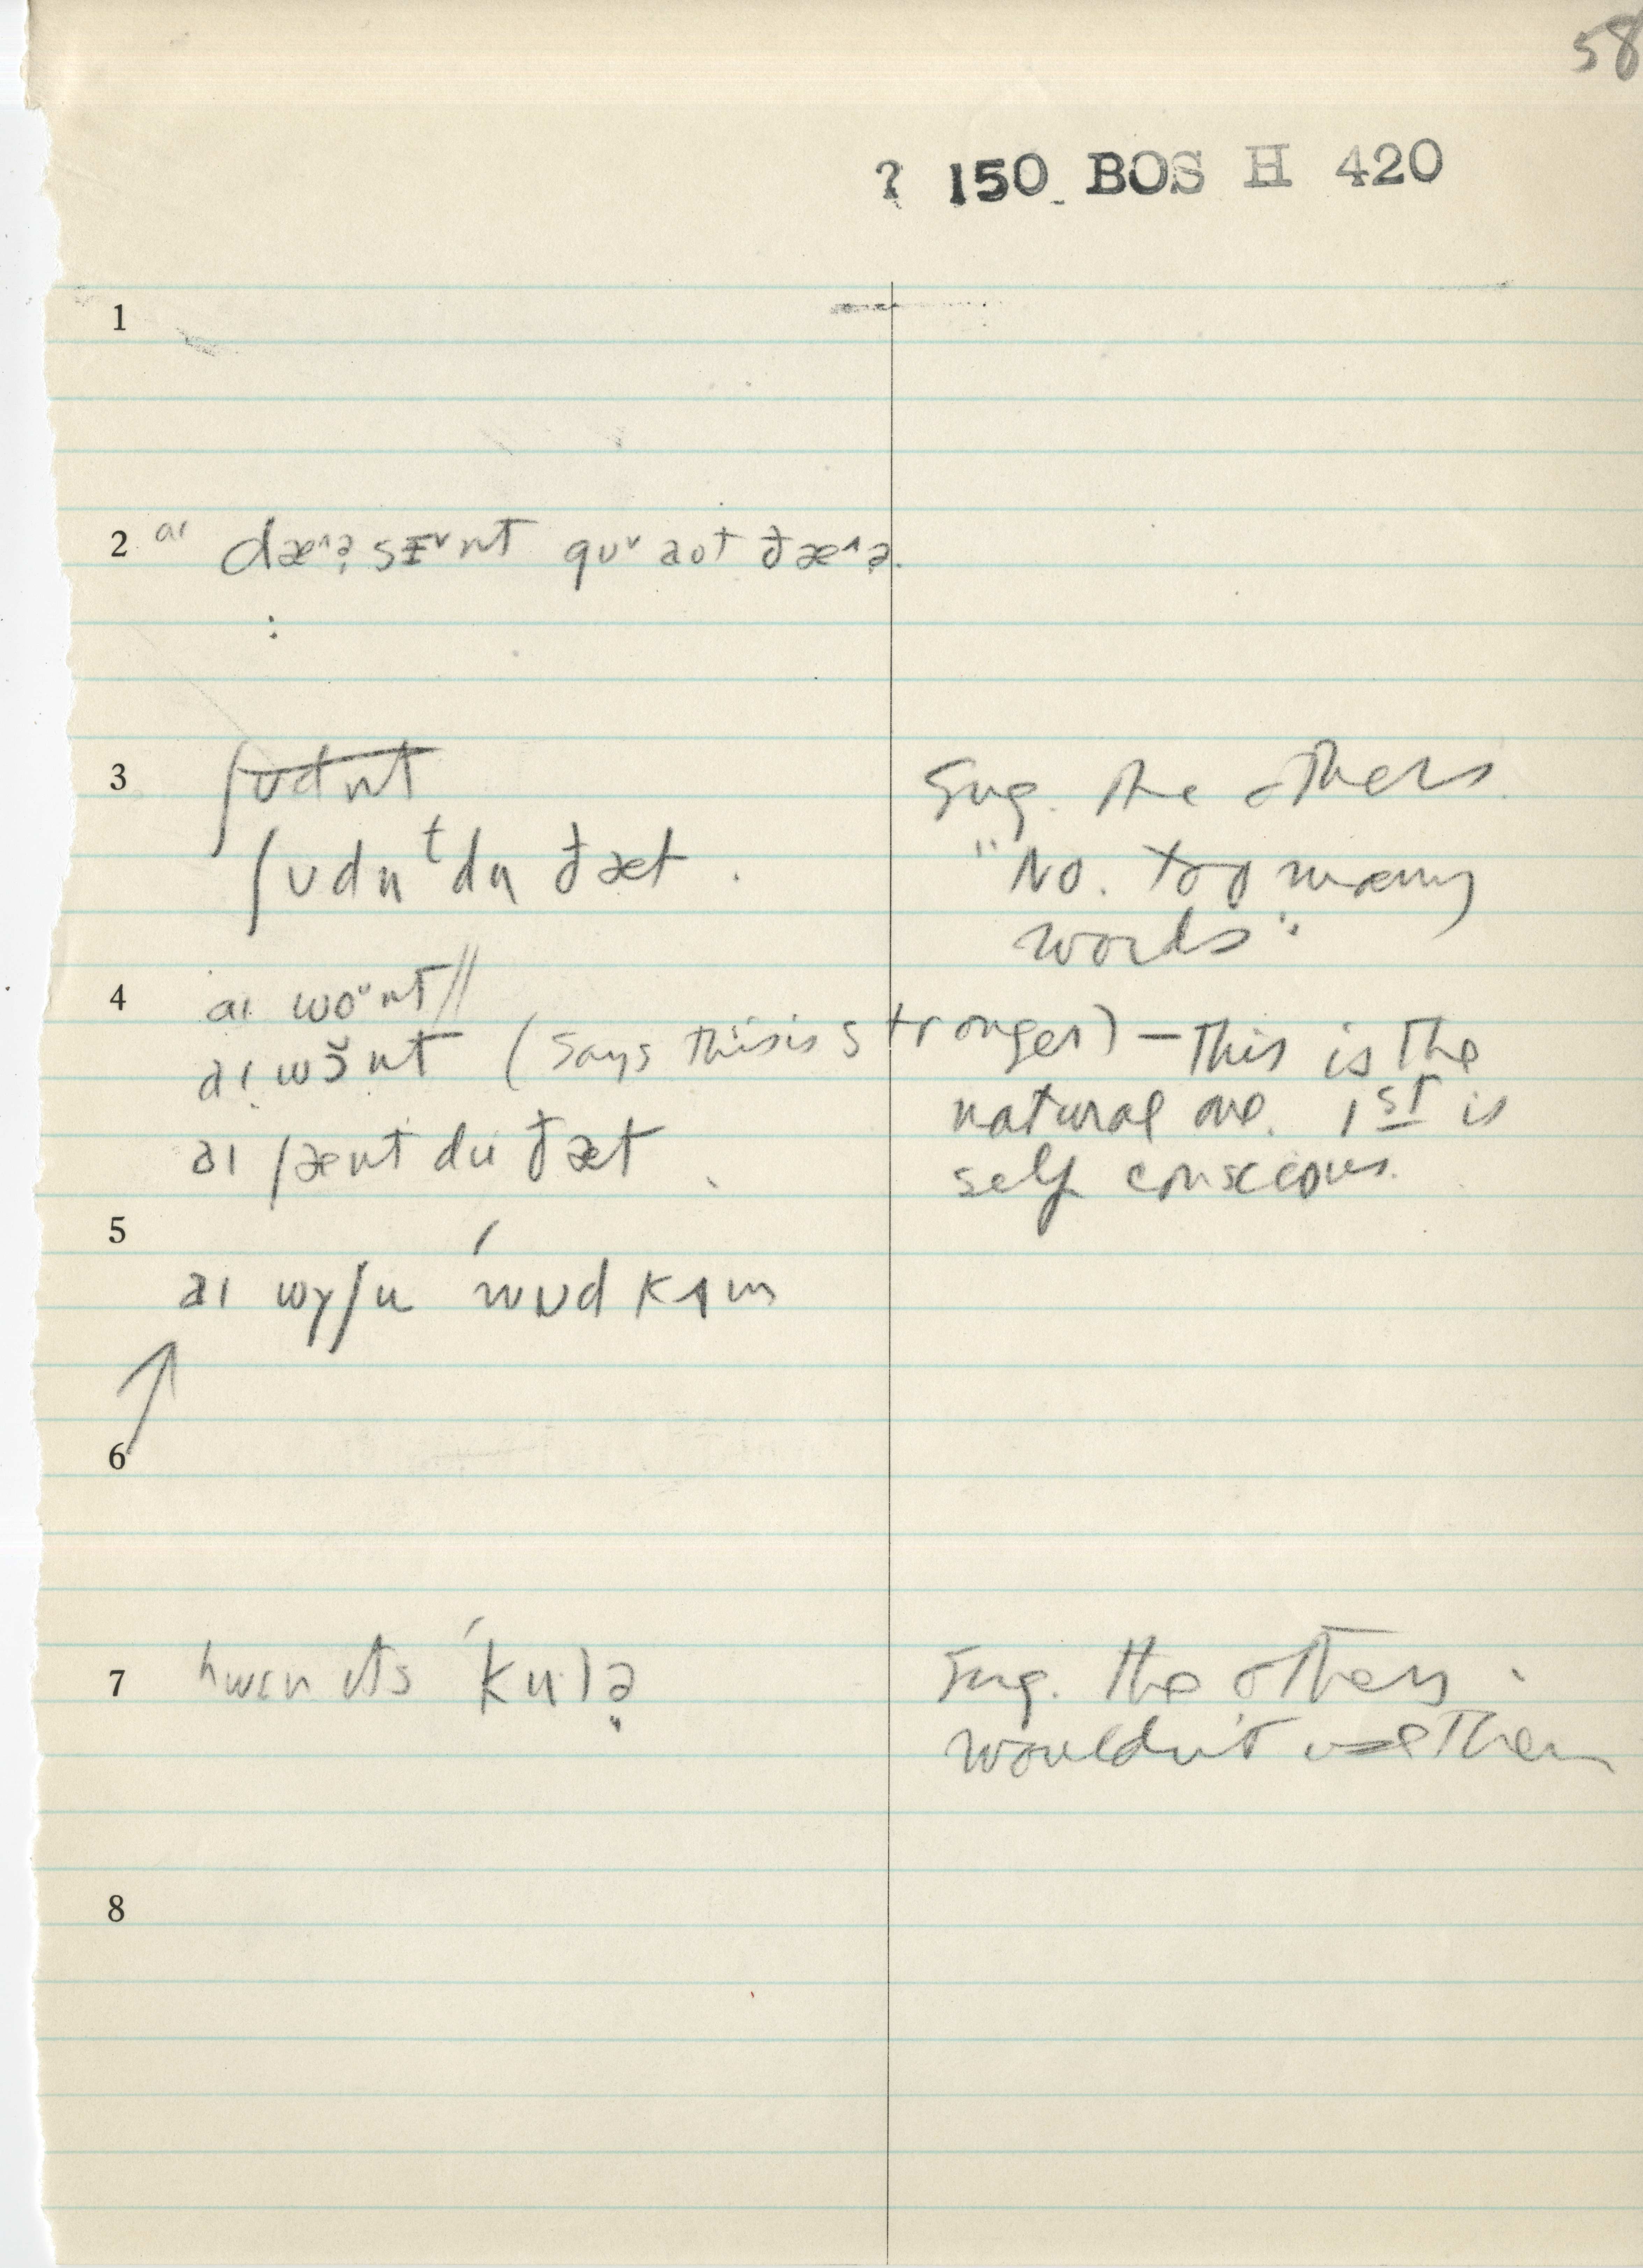 58
? 150 BOS H 420
1
2 aɪ dæ˄ə̣ sɪ˅nt gʊ˅ aʊt ðæ˄ə̣.
3 ʃʊdnt Sug. the others.
ʃʊdnᵗdu ðæt. "No. too many
words"
4 aɪ woᵘnt //
aɪ wɔ̆nt (says this is stronger) — This is the
natural one. 1st is
aɪ ʃænt du ðæt. self conscious.
5
aɪ wɪʃ u ˈwʊd kʌm
6
7 hwɛn ɪts ˈkulə̣ Sug. the others.
wouldn't use them
8